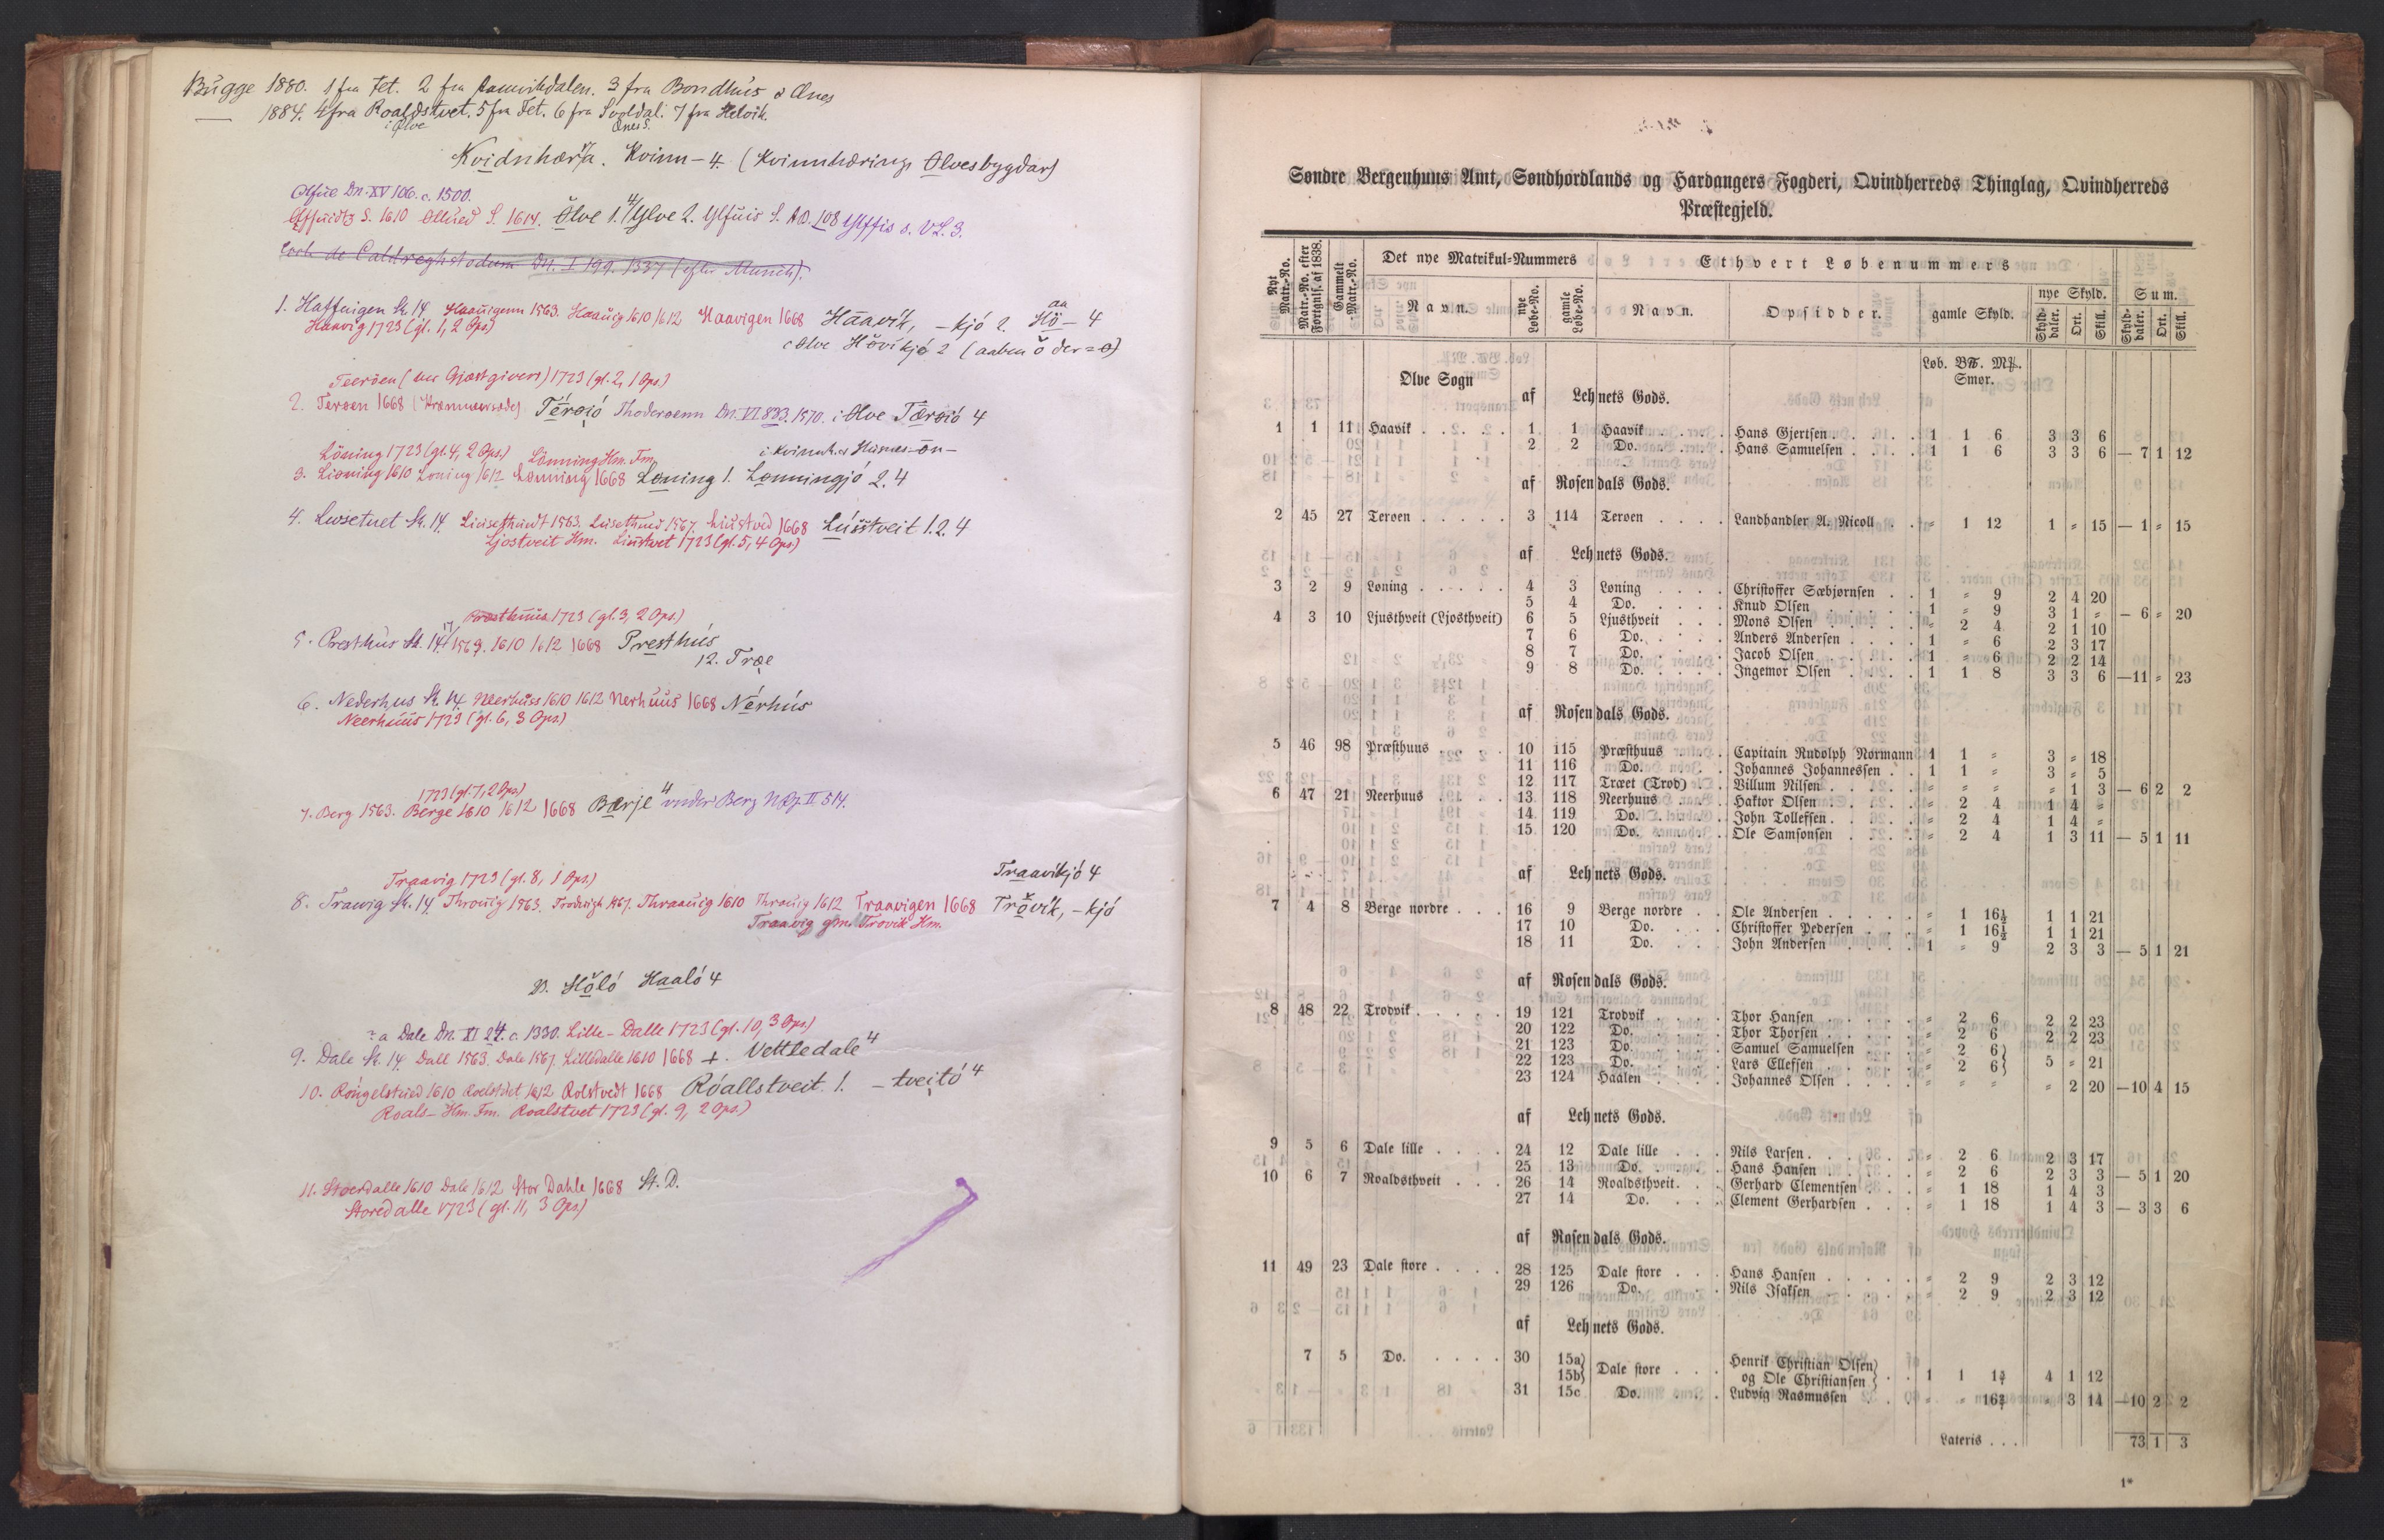 Bugge 1880. 1 fra Fet. 2 fra 3 fra Bondhus & Ænes
— 1884. 4 fra Roaldstvet. 5 fra Fet. 6 fra 7 fra Helvik.
i Ølve Ænes S.
Kvidnhærra. Kvinn-4. (Kvinnhæringe Ølvesbygdar)
Ølfue Dn. XV 106. c. 1500.
S. 1610 S. 1614. Ølve 1. Ylve 2. Ylfuis S. AO. 108 Ylffis s. VL. 3.
Dn. I 199. 1337 (efter Munch).
1. Haffuigen St. 14. Haauigenn 1563. Haauig 1610 1612 Haavigen 1668 Haavik, -kjó 2. Hō-4
aa
Haavig 1723 (gl. 1, 2 Ops)
Ølve Hŏvikjó 2 (aaben ŏ der = o)
Teerøen (een Gjæstgivers) 1723 (gl. 2, 1 Ops)
2. Terøen 1668 Térøió Thoderøenn Dn. VI 833. 1570. i Ølve Tærøió 4
Löning 1723 (gl. 4, 2 Ops.) Lönning Hm. Fm. i Kvinnh. & Husnes -ōn-
3. Lioning 1610 Loning 1612 Lonning 1668 Løning 1. Lønningjó 2. 4
4. Liusetuet St. 14. 1563. 1567. Liustved 1668 Lússtveit 1. 2. 4
Ljostveit Hm. Liustvet 1723 (gl. 5, 4 Ops)
Præsthuus 1723 (gl. 3, 2 Ops.)
5. Presthus St. 14. 1563. 1610 1612 1668 Presthús
12. Træe
6. Nederhus St. 14. Neerhuss 1610 1612 Nerhuus 1668 Nérhús
Neerhuus 1723 (gl. 6, 3 Ops.)
1723 (gl. 7, 2 Ops)
7. Berg 1563. Berge 1610 1612 1668 Bærje 4 under Berg II 514.
Traavig 1723 (gl. 8, 1 Ops.) Traavikjó 4
8. Trawig St. 14. Throuig 1563. 1567. Thraauig 1610 Thrauig 1612 Traavigen 1668 Trŏvik, -kjó
Traavig gm. Trovik Hm.
23. Hŏló Haaló 4
a Dale Dn. XI 24. c. 1330. Lille-Dalle 1723 (gl. 10, 3 Ops.)
9. Dale St. 14. Dall 1563. Dale 1567. Lilledalle 1610 1668 +. Vettledale 4
10. Rongelstued 1610 1612 Rolstvedt 1668 Róallstveit 1. -tveitó 4
Roals- Hm. Fm. Roalstvet 1723 (gl. 9, 2 Ops.)
11. Stoerdalle 1610 Dale 1612 Stor Dahle 1668 St. D.
Storedalle 1723 (gl. 11, 3 Ops)
Søndre Bergenhuus Amt, Søndhordlands og Hardangers Fogderi, Qvindherreds Thinglag, Qvindherreds
Præstegjeld.
Nyt Matr.-No. Matr.-No. efter Fortegnels. af 1838. Gammelt Matr.-No. Det nye Matrikul-Nummers Ethvert Løbenummers
Navn. nye Løbe-No. gamle Løbe-No. Navn. Opsidder. gamle Skyld. nye Skyld. Sum.
Skylddaler. Ort. Skill. Skylddaler. Ort. Skill.
Løb. B℔. M℔.
Ølve Sogn Smør.
af Lehnets Gods.
1 1 11 Haavik 1 1 Haavik Hans Gjertsen 1 1 6 3 3 6
2 2 Do. Hans Samuelsen 1 1 6 3 3 6 — 7 1 12
af Rosendals Gods.
2 45 27 Terøen 3 114 Terøen Landhandler A. Nicoll = 1 12 1 = 15 — 1 = 15
af Lehnets Gods.
3 2 9 Løning 4 3 Løning Christoffer Sæbjørnsen 1 = 9 2 4 20
5 4 Do. Knud Olsen 1 = 9 3 1 = — 6 = 20
4 3 10 Ljusthveit (Ljosthveit) 6 5 Ljusthveit Mons Olsen = 2 4 2 1 10
7 6 Do. Anders Andersen 1 = 6 2 3 17
8 7 Do. Jacob Olsen 1 = 6 2 2 14
9 8 Do. Ingemor Olsen 1 1 8 3 3 6 — 11 = 23
af Rosendals Gods.
5 46 98 Præsthuus 10 115 Præsthuus Capitain Rudolph Normann 1 1 = 3 = 18
11 116 Do. Johannes Johannessen 1 1 = 3 = 5
12 117 Træet (Trod) Villum Nilsen = = = = 1 3 — 6 2 2
6 47 21 Neerhuus 13 118 Neerhuus Haktor Olsen = 2 4 1 4 =
14 119 Do. John Tollefsen = 2 4 1 4 =
15 120 Do. Ole Samsonsen = 2 4 1 3 11 — 5 1 11
af Lehnets Gods.
7 4 8 Berge nordre 16 9 Berge nordre Ole Andersen = 1 16½ 1 1 21
17 10 Do. Christoffer Pedersen = 1 16½ 1 1 21
18 11 Do. John Andersen 1 = 9 2 3 3 — 5 1 21
af Rosendals Gods.
8 48 22 Trodvik 19 121 Trodvik Thor Hansen = 2 6 2 2 23
20 122 Do. Thor Thorsen = 2 6 2 2 23
21 123 Do. Samuel Samuelsen = 2 6
22 123 Do. Lars Ellefsen = 2 6 5 = 21
23 124 Haalen Johannes Olsen = = = = 2 20 — 10 4 15
af Lehnets Gods.
9 5 6 Dale lille 24 12 Dale lille Nils Larsen = 2 6 2 3 17
25 13 Do. Hans Hansen = 2 6 2 3 3 — 5 1 20
10 6 7 Roaldsthveit 26 14 Roaldsthveit Gerhard Clementsen = 1 18 1 4 3
27 14 Do. Clement Gerhardsen = 1 18 1 4 3 — 3 3 6
af Rosendals Gods.
11 49 23 Dale store 28 125 Dale store Hans Hansen = 2 9 2 3 12
29 126 Do. Nils Isaksen = 2 9 2 3 12
af Lehnets Gods.
7 5 Do. 30 15a Dale store Henrik Christian Olsen
15b og Ole Christiansen 1 1 4 1 12
31 15c Do. Ludvig Rasmussen = = = 3 14 — 10 2 2
Lateris 73 1 3
1*